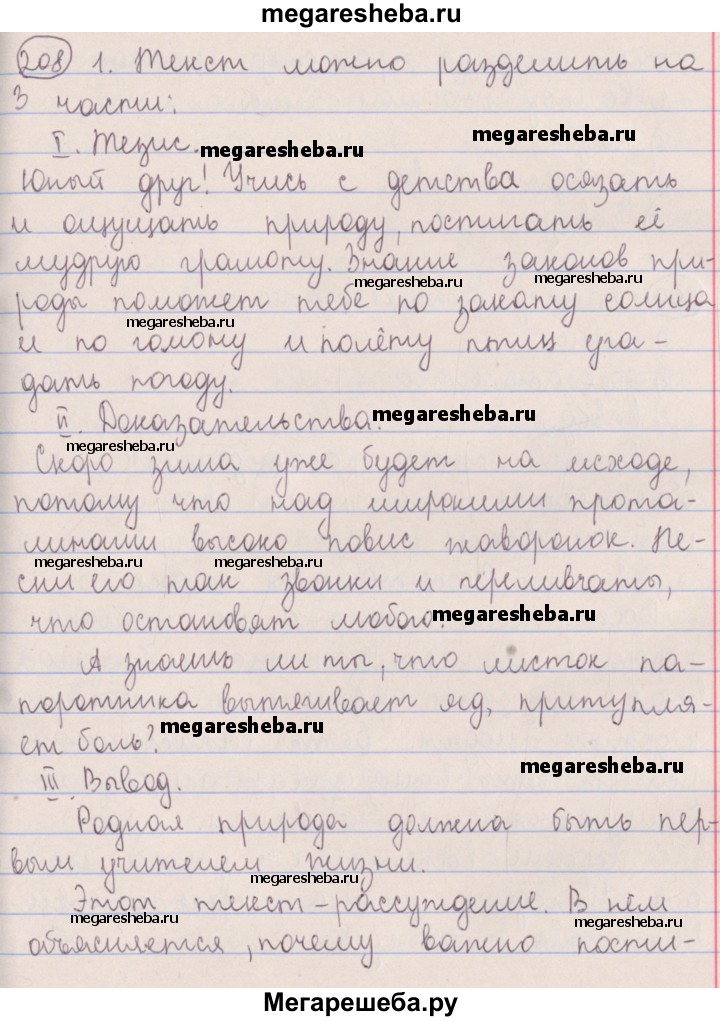 megaresheba.ru
208 1. Текст можно разделить на
3 части:
I. Тезис.
megaresheba.ru
megaresheba.ru
Юный друг! Учись с детства осязать
и ощущать природу, постигать её
мудрую грамоту. Знание законов при-
megaresheba.ru
megaresheba.ru
роды поможет тебе по закату солнца
megaresheba.ru
и по гомону и полёту птиц уга-
дать погоду.
II. Доказательства.
megaresheba.ru
megaresheba.ru
Скоро зима уже будет на исходе,
потому что над широкими прота-
линами высоко повис жаворонок. Пе-
megaresheba.ru
megaresheba.ru
сни его так звонки и переливчаты,
что остановят любого.
megaresheba.ru
А знаешь ли ты, что листок па-
поротника вытягивает яд, притупля-
ет боль?
megaresheba.ru
III Вывод.
megaresheba.ru
Родная природа должна быть пер-
вым учителем жизни.
megaresheba.ru
Этот текст-рассуждение. В нём
megaresheba.ru
объясняется, почему важно пости-
megaresheba.ru
Мегарешеба.ру